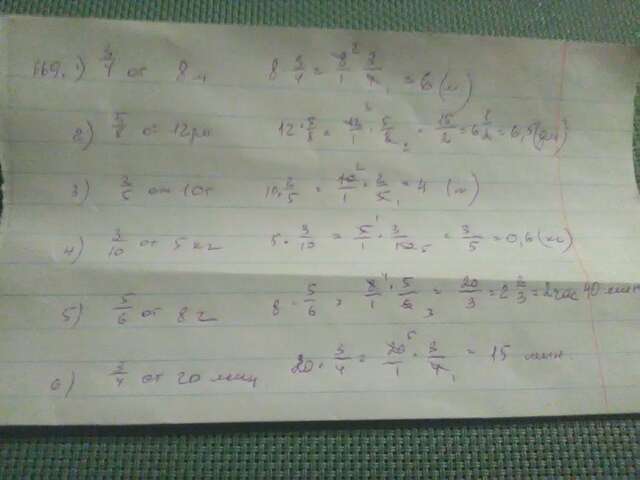 169. 1) 3/4 от 8 м 8 · 3/4 = 8/1 · 3/4 = 6 (м)
2) 5/8 от 12 12 · 5/8 = 12/1 · 5/8 = 15/2 = 6,5
3) 2/5 от 10т 10 · 2/5 = 10/1 · 2/5 = 4
4) 3/10 от 5 кг 5 · 3/10 = 5/1 · 3/10 = 3/5 = 0,6 (кг)
5) 5/6 от 8 8 · 5/6 = 8/1 · 5/6 = 20/3 = 2 2/3 = 2 час 40 мин
6) 3/4 от 20 мин 20 · 3/4 = 20/1 · 3/4 = 15 мин